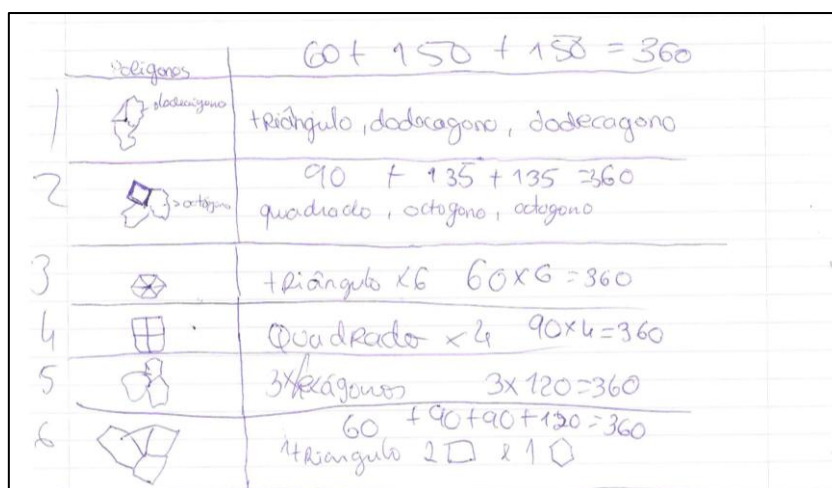 Polígonos
60 + 150 + 150 = 360
1
dodecágono
triângulo, dodecagono, dodecagono
2
90 + 135 + 135 = 360
octógono
quadrado, octogono, octogono
3
triângulo x6 60x6=360
4
Quadrado x 4 90x4=360
5
3x hexágonos 3x120=360
6
60 + 90+90+120=360
1 triangulo 2 □ e 1 ⬡